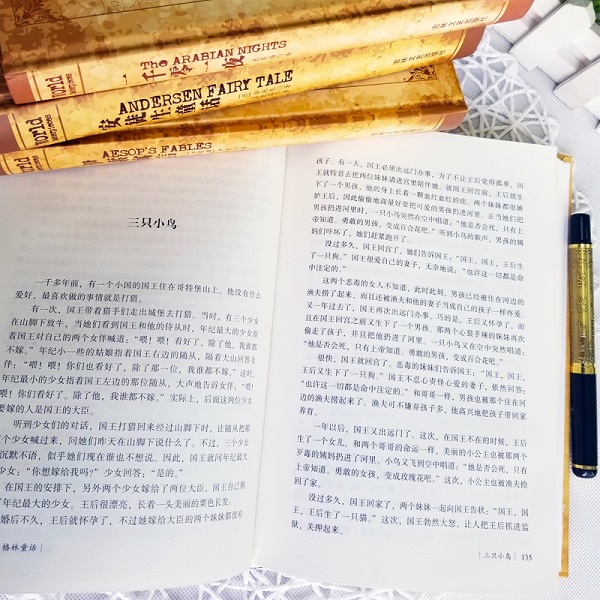 吉林文史出版社
The ARABIAN NIGHTS
一千零一夜
World
吉林文史出版社
ANDERSEN FAIRY TALE
安徒生童话
World
AESOP'S FABLES
三只小鸟
一千多年前，有一个小国的国王住在哥特堡山上。他没有什么
爱好，最喜欢做的事情就是打猎。
有一次，国王带着猎手们走出城堡去打猎。当时，有三个少女
在山脚下放牛，当她们看到国王和他的侍从时，年纪最大的少女指
着国王对自己的两个女伴喊道：“喂！喂！看好了，除了他，我谁都
不嫁。”年纪小一些的姑娘指着国王右边的随从，隔着大山回答女
伴：“喂！喂！你们也看好了，除了那一位，我谁都不嫁。”这时，
年纪最小的少女指着国王左边的那位随从，大声地告诉女伴：“喂！
喂！你们看好了。除了他，我谁都不嫁。”实际上，后面这两位少女
要嫁的人是国王的大臣。
听到少女们的对话，国王打猎回来经过山脚下时，让随从把那
个少女喊过来，问她们昨天在山脚下说什么了。不过，三个少女
沉默不语，似乎她们现在谁也不想说。因此，国王就问年纪最大
少女：“你想嫁给我吗？”少女回答：“是的。”
在国王的安排下，另外两个少女嫁给了两位大臣，国王自己则
年纪最大的少女。王后很漂亮，长着一头美丽的栗色长发。
婚后不久，王后就怀孕了，不过她嫁给大臣的两个妹妹都没有
格林童话
孩子。有一天，国王必须出远门办事，为了不让王后觉得孤单，国
王就特意去把两位妹妹请进宫里陪伴她，就国王回宫前，王后就生
下了一个男孩，他的身上长着一颗血红血红的痣。两个妹妹都很嫉
妒王后，因此偷偷地商量好要把可爱的男孩扔进河里。正当她们把
男孩扔进河里时，一只小鸟突然在空中唱道：“他是否会死，只有上
帝知道。勇敢的男孩，变成百合花吧。”听到小鸟的歌声，男孩的姨
妈们吓坏了，她们赶紧跑开了。
没过多久，国王回宫了，她们告诉国王：“国王，国王，王后生
了一只狗。”国王很爱自己的妻子，无奈地说：“也许这一切都是命
中注定的。”
这两个恶毒的女人不知道，此时此刻，男孩已经被住在河边的
渔夫捞了起来，而且还被渔夫和他的妻子当成自己的孩子一样疼爱。
又一年过去了，国王再次出远门办事。巧的是，王后又怀孕了，而
且在国王回宫之前又生下了一个男孩。那两个心狠手辣的妹妹再次
偷走了孩子，并且把他扔进了河里。一只小鸟又在空中突然唱道：
“他是否会死，只有上帝知道。勇敢的男孩，变成百合花吧。”
很快，国王就回宫了。恶毒的妹妹们告诉国王：“国王，国王，
王后又生下了一只狗。”国王不忍心责怪心爱的妻子，依然回答：
“也许这一切都是命中注定的。”和哥哥一样，男孩也被那个住在河
边的渔夫捞起来了。渔夫可不嫌弃孩子多，他高兴地把孩子带回家
养育。
一年以后，国王又出远门了。这次，在国王不在的时候，王后
生了一个女儿。和两个哥哥的命运一样，美丽的小公主也被那两个
歹毒的姨妈扔进了河里。小鸟又飞到空中唱道：“她是否会死，只有
上帝知道。勇敢的女孩，变成玫瑰花吧。”这次，小公主也被渔夫捡
回了家。
没过多久，国王回家了，两个妹妹一起向国王告状：“国王，国
王，王后生了一只猫。”这次，国王勃然大怒，让人把王后抓进监
狱，关押起来。
三只小鸟 135